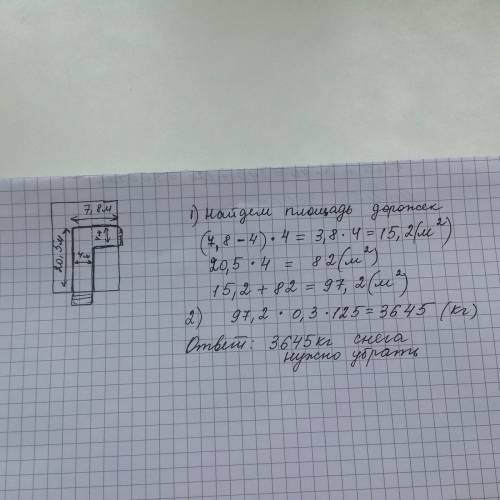 7,8м
20,5м
4м
1) Найдем площадь дорожек
(7,8-4)·4=3,8·4=15,2(м²)
20,5·4 = 82(м²)
15,2+82=97,2(м²)
2) 97,2·0,3·125=3645 (кг)
Ответ: 3645кг снега
нужно убрать